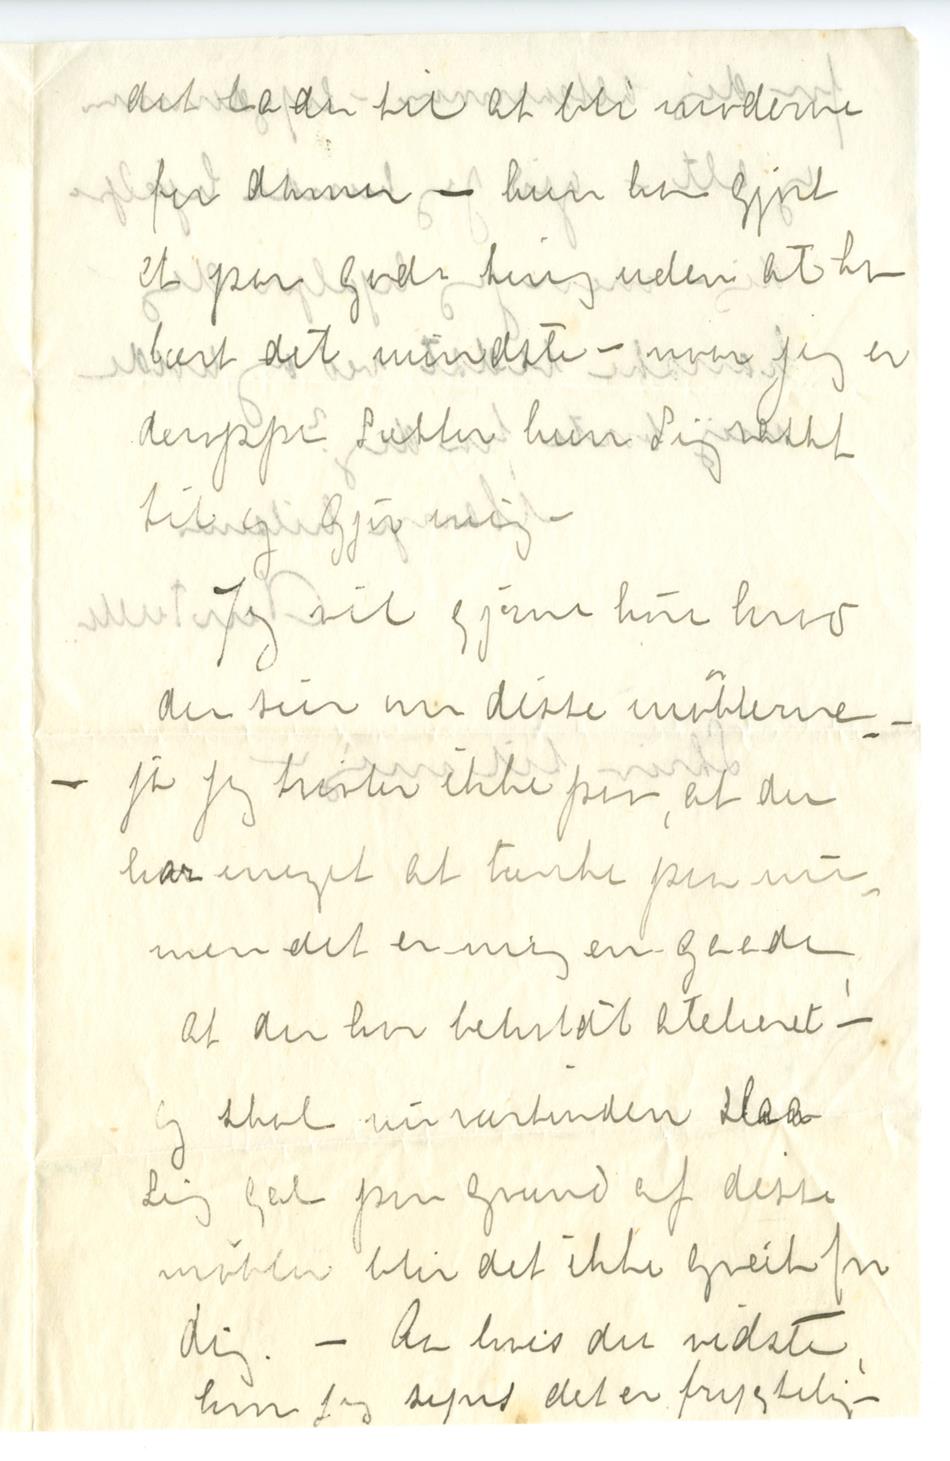 det lader til at bli moderne
for damer – hun har gjort
et par gode ting uden at ha
lært det mindste – naar jeg er
deroppe sætter hun sig rasht
til og gjør mig –
Jeg vil gjerne høre hvad
du sier om disse møblerne –
– ja jeg tviler ikke paa, at du
har meget at tænke paa nu –
men det er mig en gaade,
at du har beholdt atelieret –
og skal nu værtinden slaa
sig gal paa grund af disse
møbler blir det ikke greit for
dig. – Aa hvis du vidste,
hvor jeg synes det er frygtelig –